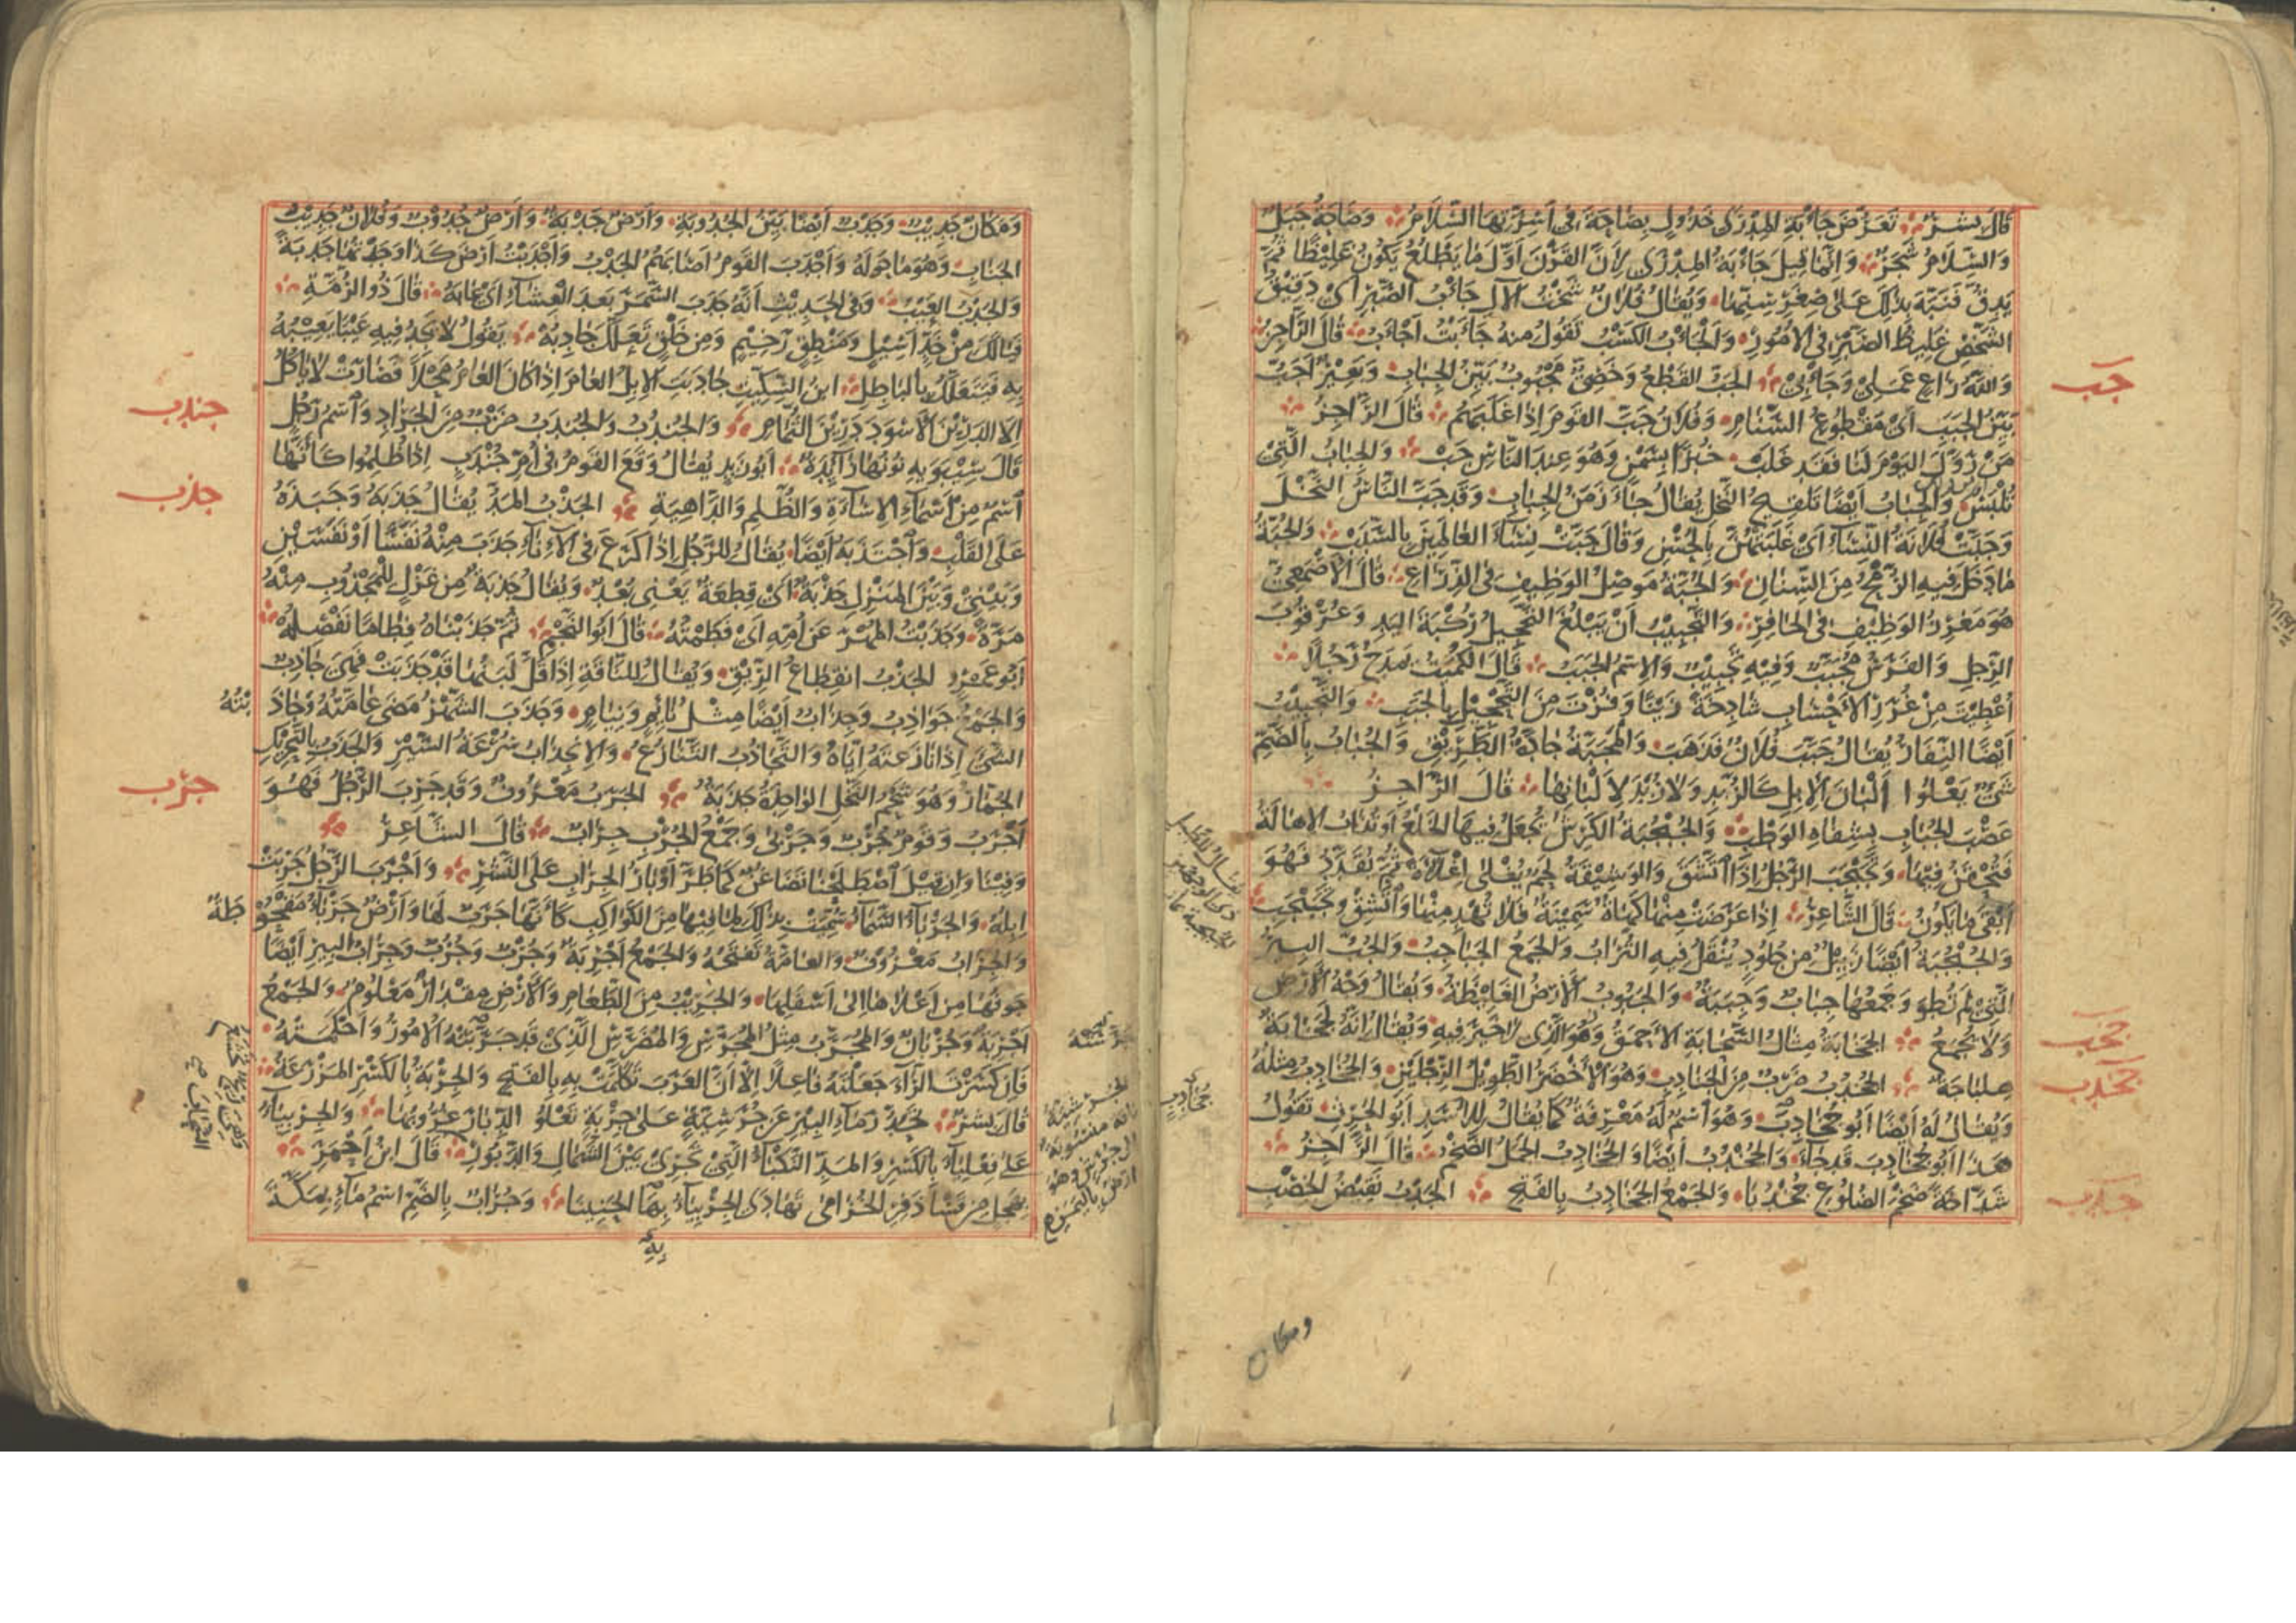 قَالَ بِشْرٌ تَعَرُّضَ جَأْبَةِ المِدْرَى خَذُولٍ بِصَاحَةَ فِى أَسِرَّتِهَا السَّلَامُ وَصَاحَةُ جَبَلٌ
وَالسَّلَامُ شَجَرٌ وَانَّمَا قِيلَ جَأْبَةُ المِدْرَى لِأَنَّ القَرْنَ أَوَّلَ مَا يَطْلُعُ يَكُونُ غَلِيْظًا ثُمَّ
يَدِقُّ فَنَبَّهَ بِذَلِكَ عَلَى صِغَرِ سِنِّهَا وَيُقَالُ فُلَانٌ شَخْتُ الآلِ جَأْبُ الصَّبْرِ أَىْ دَقِيْقُ
الشَّخْصِ غَلِيظُ الصَّبْرِ فِى الأُمُورِ وَالجَأْبُ الكَسْبُ تَقُولُ مِنهُ جَأَبْتُ أَجْأَبُ قَالَ الرَّاجِزُ
وَاللهُ رَاعٍ عَمَلِى وَجَأْبِى الجَبُّ القَطْعُ وَخَصِىٌّ مَجْبُوبٌ بَيِّنُ الجِبَابِ وَبَعِيْرٌ أَجَبُّ
بَيِّنُ الجَبَبِ أَىْ مَقْطُوعُ السَّنَامِ وَفُلَانٌ جَبَّ القَومَ اِذَا غَلَبَهُم قَالَ الرَّاجِزُ
مَنْ رَوَّلَ اليَوْمَ لَنَا فَقَد غَلَبْ خُبْزًا بِسَمْنٍ وَهُوَ عِندَ النَّاسِ جَبْ وَالجِبَابُ الَّتِى
تُلْبَسُ وَالجِبَابُ أَيْضًا تَلْقِيحُ النَّخْلِ يُقَالُ جَاءَ زَمَنُ الجِبَابِ وَقَد جَبَّ النَّاسُ النَّخْلَ
وَجَبَّتْ فُلَانَةُ النِّسَاءَ أَىْ غَلَبَتْهُنَّ بِالحُسْنِ وَقَالَ جَبَّتْ نِسَاءَ العَالَمِينَ بِالسَّبَبْ وَالجُبَّةُ
مَا دَخَلَ فِيهِ الرُّمْحُ مِنَ السِّنَانِ وَالجُبَّةُ مَوصِلُ الوَظِيفِ فِى الذِّرَاعِ قَالَ الأَصْمَعِىُّ
هُوَ مَغْرِزُ الوَظِيفِ فِى الحَافِرِ وَالتَّجْبِيْبُ أَنْ يَبْلُغَ التَّحْجِيلُ رُكْبَةَ اليَدِ وَعُرْقُوبَ
الرِّجْلِ وَالفَرَسُ مُجَبَّبٌ وَفِيهِ تَجْبِيْبٌ وَالِاسْمُ الجَبَبُ قَالَ الكُمَيْتُ يَمدَحُ رَجُلًا
أُعْطِيْتَ مِنْ غُرَرِ الأَحْسَابِ شَادِخَةً زَيْنًا وَفُزْتَ مِنَ التَّحْجِيْلِ بِالجَبَبِ وَالتَّجْبِيْبُ
أَيْضًا النِّفَارُ يُقَالُ جَبَّبَ فُلَانٌ فَذَهَبَ وَالمَجَبَّةُ جَادَّةُ الطَّرِيْقِ وَالجُبَابُ بِالضَّمِّ
شَىْءٌ يَعْلُوا أَلْبَانَ الإِبِلِ كَالزُّبْدِ وَلَا زُبْدَ لِأَلْبَانِهَا قَالَ الرَّاجِزُ
عَصْبَ الجُبَابِ بِشِفَاهِ الوَطْبِ وَالجُبْجُبَةُ الكَرِشُ يُجْعَلُ فِيهَا الخَلْعُ أَو تُذَابُ الإِهَالَةُ
فَتُحْقَنُ فِيْهَا وَتَجَبْجَبَ الرَّجُلُ إِذَا اتَّشَقَ وَالوَشِيْقَةُ لَحْمٌ يُغْلَى إِغْلَاءَةً ثُمَّ يُقَدَّدُ فَهُوَ
أَبْقَى مَا يَكُونُ قَالَ الشَّاعِرُ إِذَا عَرَضَتْ مِنْهَا كَهَاةٌ سَمِيْنَةٌ فَلَا تُهْدِ مِنْهَا وَاتَّشِقْ وَتَجَبْجَبِ
وَالجُبْجُبَةُ أَيْضًا زَبِيْلٌ مِن جُلُودٍ يُنْقَلُ فِيهِ التُّرَابُ وَالجَمعُ الجَبَاجِبُ وَالجُبُّ البِيرُ
الَّتِى لَمْ تُطْوَ وَجَمْعُهَا جِبَابٌ وَجِبَبَةٌ وَالجَبُوبُ الأَرْضُ الغَلِيْظَةُ وَيُقَالُ وَجْهُ الأَرْضِ
وَلَا يُجْمَعُ الجَخَابَةُ مِثَالُ السَّحَابَةِ الأَحْمَقُ وَهُوَ الَّذِى لَا خَيْرَ فِيهِ وَيُقَالُ إِنَّهُ لَجَخَابَةٌ
هِلْبَاجَةٌ الجُخْدُبُ ضَرْبٌ مِنَ الجَنَادِبِ وَهُوَ الأَخْضَرُ الطَّوِيْلُ الرِّجْلَيْنِ وَالجُخَادِبُ مِثْلُهُ
وَيُقَالُ لَهُ أَيْضًا أَبُو جُخَادِبٍ وَهُوَ اسْمٌ لَهُ مَعْرِفَةٌ كَمَا يُقَالُ لِلأَسَدِ أَبُو الحَرِثِ تَقُولُ
هَذَا أَبُو جُخَادِبَ قَد جَاءَ وَالجُخْدُبُ أَيْضًا وَالجُخَادِبُ الجَمَلُ الضَّخْمُ قَالَ الرَّاجِزُ
شَدَّاخَةً ضَخْمَ الضُّلُوعِ جُخْدُبَا وَالجَمْعُ الجَخَادِبُ بِالفَتْحِ الجَدْبُ نَقِيْضُ الخِصْبِ
جبب
جخب
جخدب
جدب
جُخَادِبٍ
ومكان
وَمَكَانٌ جَدِيْبٌ وَجَدْبٌ أَيْضًا بَيِّنُ الجُدُوبَةِ وَأَرْضٌ جَدْبَةٌ وَأَرْضٌ جُدُوْبٌ وَفُلَانٌ جَدِيْبُ
الجَنَابِ وَهُوَ مَا حَولَهُ وَأَجْدَبَ القَومُ أَصَابَهُمُ الجَدْبُ وَأَجْدَبْتُ أَرْضَ كَذَا وَجَدْتُهَا جَدْبَةً
وَالجَدْبُ العَيْبُ وَفِى الحَدِيْثِ أَنَّهُ جَدَبَ السَّمَرَ بَعدَ العِشَاءِ أَىْ عَابَهُ قَالَ ذُو الرُّمَّةِ
فَيَالَكَ مِنْ خَدٍّ أَسِيْلٍ وَمَنْطِقٍ رَخِيْمٍ وَمِنْ خَلْقٍ تَعَلَّلَ جَادِبُهْ يَقُولُ لَا يَجِدُ فِيهِ عَيْبًا يَعِيْبُهُ
بِهِ فَيَتَعَلَّلُ بِالبَاطِلِ ابنُ السِّكِّيْتِ جَادَبَتِ الإِبِلُ العَامَ إِذَا كَانَ العَامُ مَحْلًا فَصَارَتْ لَا تَأْكُلُ
إِلَّا الدَّرِيْنَ الأَسْوَدَ دَرِيْنَ الثُّمَامِ وَالجُنْدُبُ وَالجُنْدَبُ ضَرْبٌ مِنَ الجَرَادِ وَاسْمُ رَجُلٍ
قَالَ سِيْبَوَيهِ نُونُهَا زَايِدَةٌ أَبُو زَيدٍ يُقَالُ وَقَعَ القَومُ فِى أُمِّ جُنْدَبٍ إِذَا ظُلِمُوا كَأَنَّهَا
اسْمٌ مِنْ أَسْمَاءِ الإِسَاءَةِ وَالظُّلْمِ وَالدَّاهِيَةِ الجَذْبُ المَدُّ يُقَالُ جَذَبَهُ وَجَبَذَهُ
عَلَى القَلْبِ وَاجْتَذَبَهُ أَيْضًا يُقَالُ لِلرَّجُلِ إِذَا كَرَعَ فِى الإِنَاءِ جَذَبَ مِنْهُ نَفَسًا أَوْ نَفَسَيْنِ
وَبَيْنِى وَبَيْنَ المَنْزِلِ جَذْبَةٌ أَىْ قِطْعَةٌ يَعْنِى بُعْدٌ وَيُقَالُ جَذْبَةٌ مِنْ غَزْلٍ لِلمَجْذُوبِ مِنْهُ
مَرَّةً وَجَذَبْتُ المُهْرَ عَن أُمِّهِ أَىْ فَطَمْتُهُ قَالَ أَبُو النَّجْمِ ثُمَّ جَذَبْنَاهُ فِطَامًا نَفْصِلُهْ
أَبُو عَمْرٍو الجَذْبُ انقِطَاعُ الرِّيْقِ وَيُقَالُ لِلنَّاقَةِ إِذَا قَلَّ لَبَنُهَا قَدْ جَذَبَتْ فَهِىَ جَاذِبٌ
وَالجَمْعُ جَوَاذِبُ وَجِذَابٌ أَيْضًا مِثْلُ نَائِمٍ وَنِيَامٍ وَجَذَبَ الشَّهْرُ مَضَى عَامَّتُهُ وَجَاذَ بْتُهُ
الشَّىْءَ إِذَا نَازَعتَهُ إِيَّاهُ وَالتَّجَاذُبُ التَّنَازُعُ وَالِانجِذَابُ سُرْعَةُ السَّيْرِ وَالجَذَبُ بِالتَّحْرِيْكِ
الجُمَّارُ وَهُوَ شَحْمُ النَّخْلِ الوَاحِدَةُ جَذَبَةٌ الجَرَبُ مَعْرُوفٌ وَقَد جَرِبَ الرَّجُلُ فَهُوَ
أَجْرَبُ وَقَومٌ جُرْبٌ وَجَرْبَى وَجَمْعُ الجُرْبِ جِرَابٌ قَالَ الشَّاعِرُ
وَفِيْنَا وَإِن قِيْلَ اصْطَلَحْنَا تَضَاغُنٌ كَمَا طَرَّ أَوْبَارُ الجِرَابِ عَلَى النَّشْرِ وَأَجْرَبَ الرَّجُلُ جَرِبَتْ
إِبِلُهُ وَالجَرْبَاءُ السَّمَاءُ سُمِّيَتْ بِذَلِكَ لِمَا فِيْهَا مِنَ الكَوَاكِبِ كَأَنَّهَا جَرَبٌ لَهَا وَأَرْضٌ جَرْبَاءُ مَقْحُوْ طَةٌ
وَالجِرَابُ مَعْرُوفٌ وَالعَامَّةُ تَفْتَحُهُ وَالجَمْعُ أَجْرِبَةٌ وَجُرْبٌ وَجُرُبٌ وَجِرَابُ البِيرِ أَيْضًا
جَوفُهَا مِن أَعْلَاهَا إِلَى أَسْفَلِهَا وَالجَرِيْبُ مِنَ الطَّعَامِ وَالأَرْضِ مِقْدَارٌ مَعْلُومٌ وَالجَمْعُ
أَجْرِبَةٌ وَجُرْبَانٌ وَالمُجَرَّبُ مِثْلُ المُجَرَّسِ وَالمُضَرَّسِ الَّذِى قَد جَرَّبَتْهُ الأُمُورُ وَأَحْكَمَتْهُ
فَإِن كَسَرْتَ الرَّاءَ جَعَلْتَهُ فَاعِلًا إِلَّا أَنَّ العَرَبَ تَكَلَّمَتْ بِهِ بِالفَتْحِ وَالجِرْبَةُ بِالكَسْرِ المَزْرَعَةُ
قَالَ بِشْرٌ تَحَدُّرَ مَاءِ البِيْرِ عَن جُرَشِيَّةٍ عَلَى جِرْبَةٍ تَعْلُو الدِّبَارَ غُرُوبُهَا وَالجِرْبِيَاءُ
عَلَى فِعْلِيَاءَ بِالكَسْرِ وَالمَدِّ النَّكْبَاءُ الَّتِى تَجْرِى بَيْنَ الشَّمَالِ وَالدَّبُورِ قَالَ ابْنُ أَحْمَرَ
بِهَجْلٍ مِنْ قَسًا ذَفِرِ الخُزَامَى تَهَادَى الجِرْبِيَاءُ بِهِ الحَنِيْنَا وَجُرَابٌ بِالضَّمِّ اسْمُ مَاءٍ بِمَكَّةَ
جندب
جذب
جرب